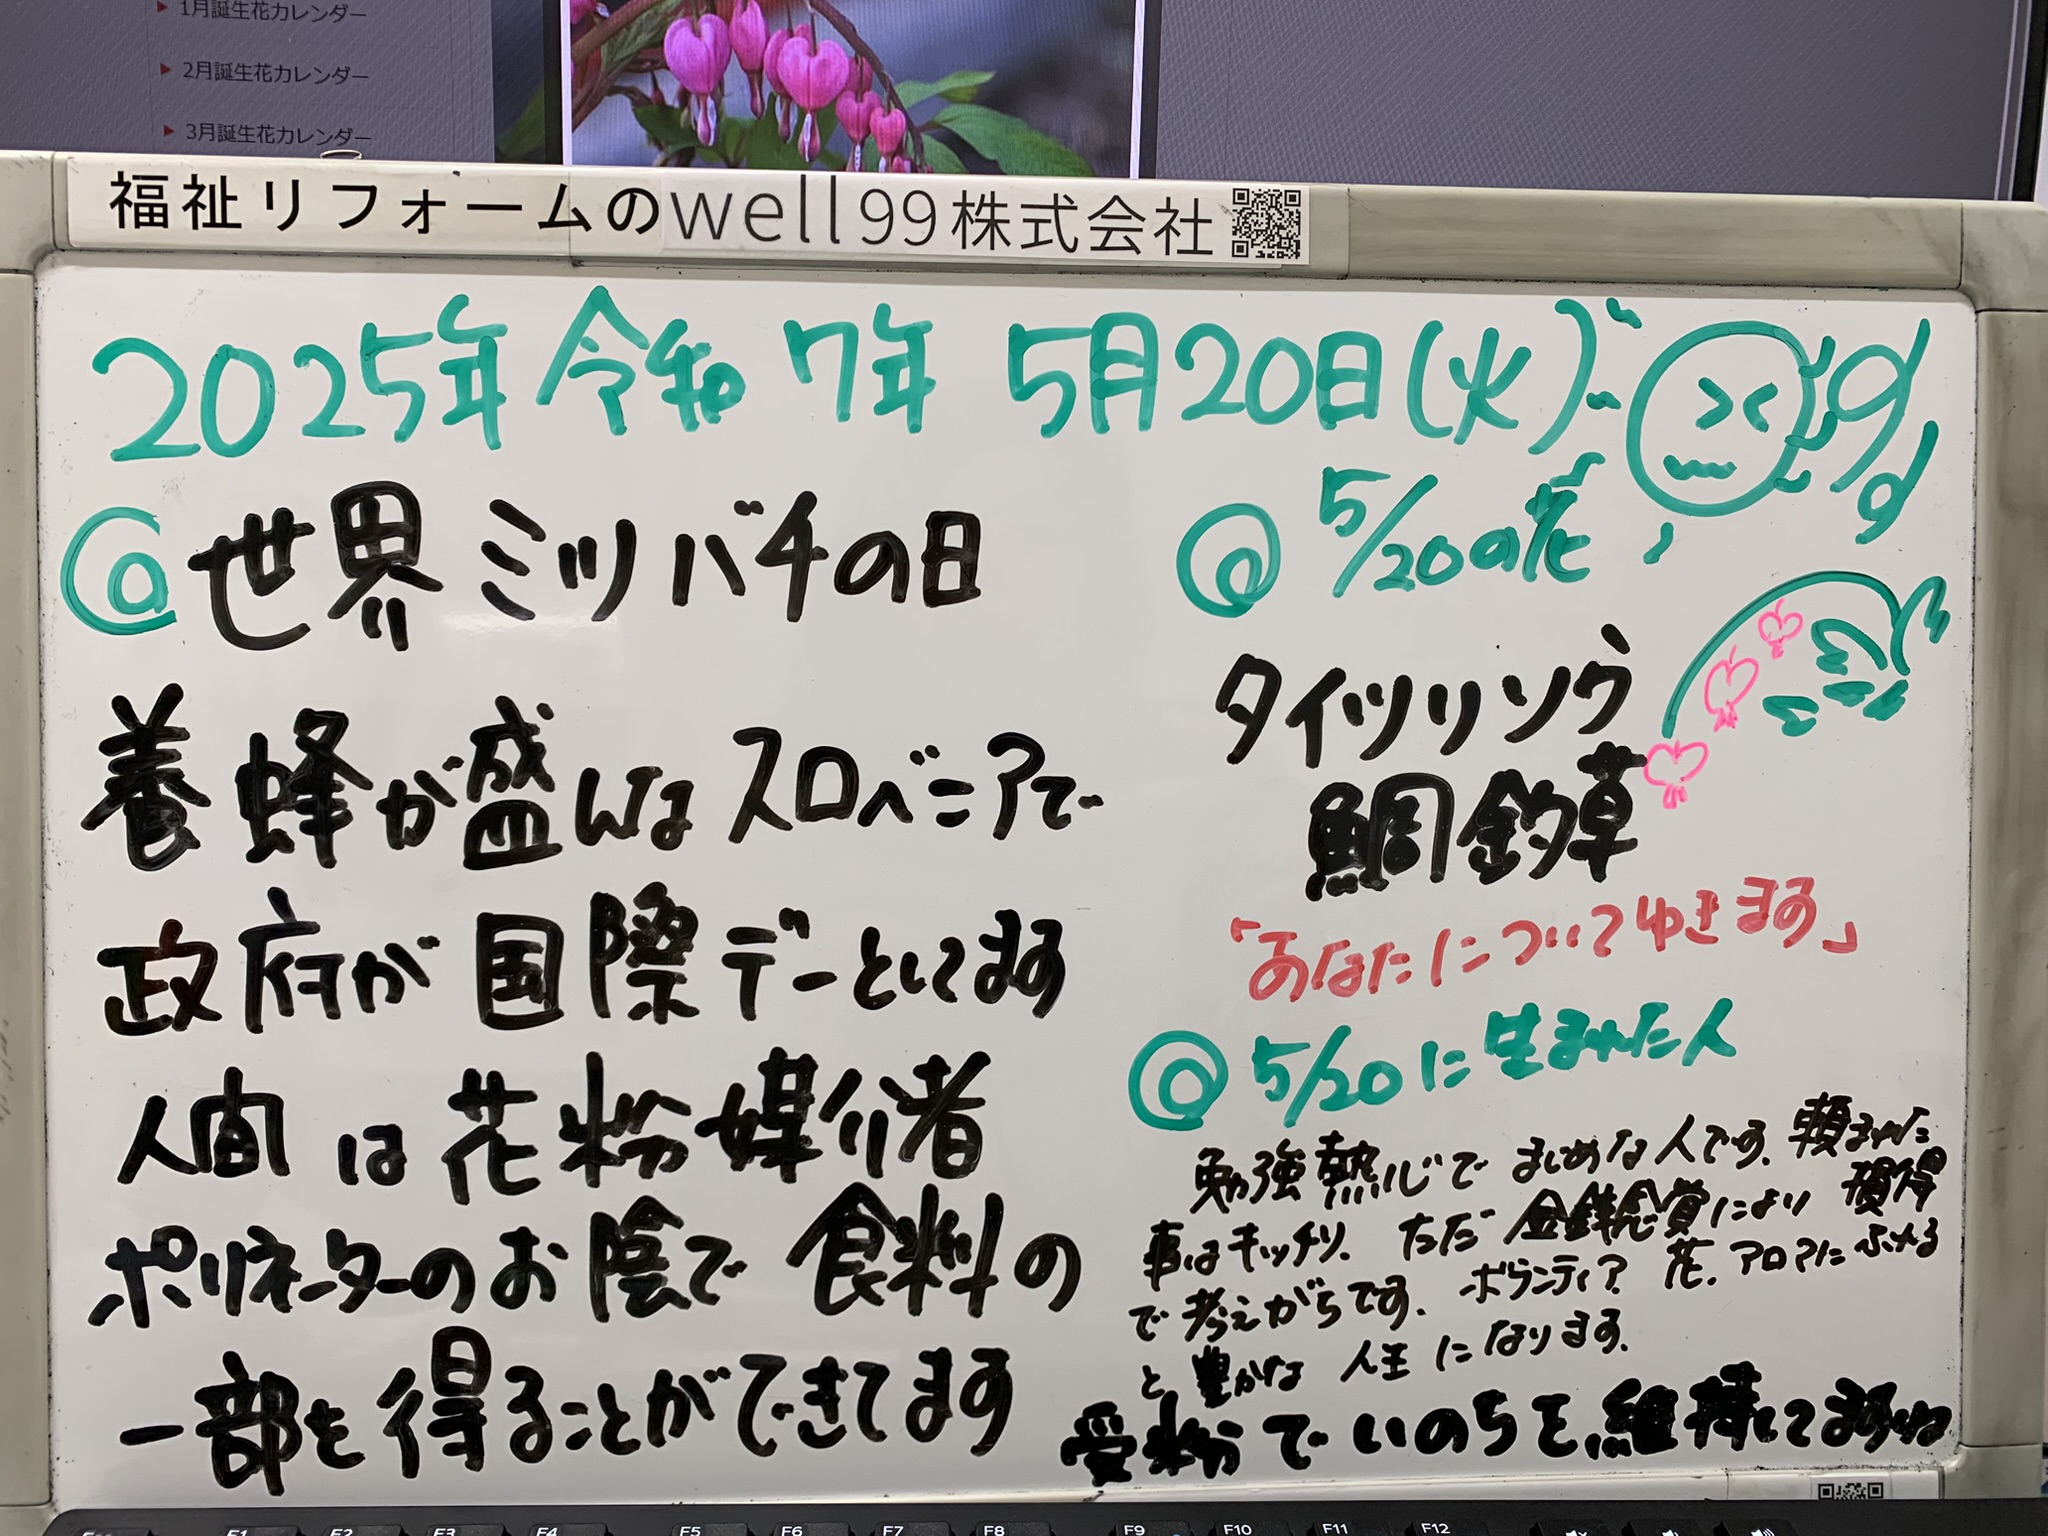 1月誕生花カレンダー
2月誕生花カレンダー
3月誕生花カレンダー
福祉リフォームのwell99株式会社
2025年 令和7年 5月20日(火)
@世界ミツバチの日
養蜂が盛んなスロベニアで
政府が国際デーとしてます
人間は花粉媒介者
ポリネーターのお陰で食料の
一部を得ることができてます
@5/20の花
タイツリソウ
鯛釣草
「あなたについてゆきます」
@5/20に生まれた人
勉強熱心でまじめな人です。頼まれた
事はキッチリ。ただ金銭感覚により損得
で考えがちです。ボランティ?花.アロマにふれる
と豊かな人生になります.
受粉でいのちを維持してますね
F1 F2 F3 F4 F5 F6 F7 F8 F9 F10 F11 F12